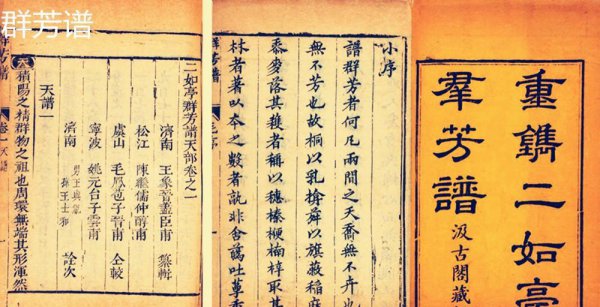 群芳谱
重鐫二如亭
羣芳譜
汲古閣藏
小序
譜群芳者何凡兩間之夭喬無不卉也
無不芳也故桐以乳擒舜以旗薇稻
黍麥落其穫者稱以穗榛梗楠梓取其
林者著以本之數者孰非含蒿吐華
二如亭群芳譜天部卷之一
濟南 王象晉藎臣甫 纂輯
松江 陳繼儒仲醇甫
虞山 毛鳳苞子晉甫 仝較
寧波 姚元台子雲甫
濟南 男王與
孫王士和 詮次
天譜一
積陽之精群物之祖也周環無端其形渾然
群芳譜
卷一天譜